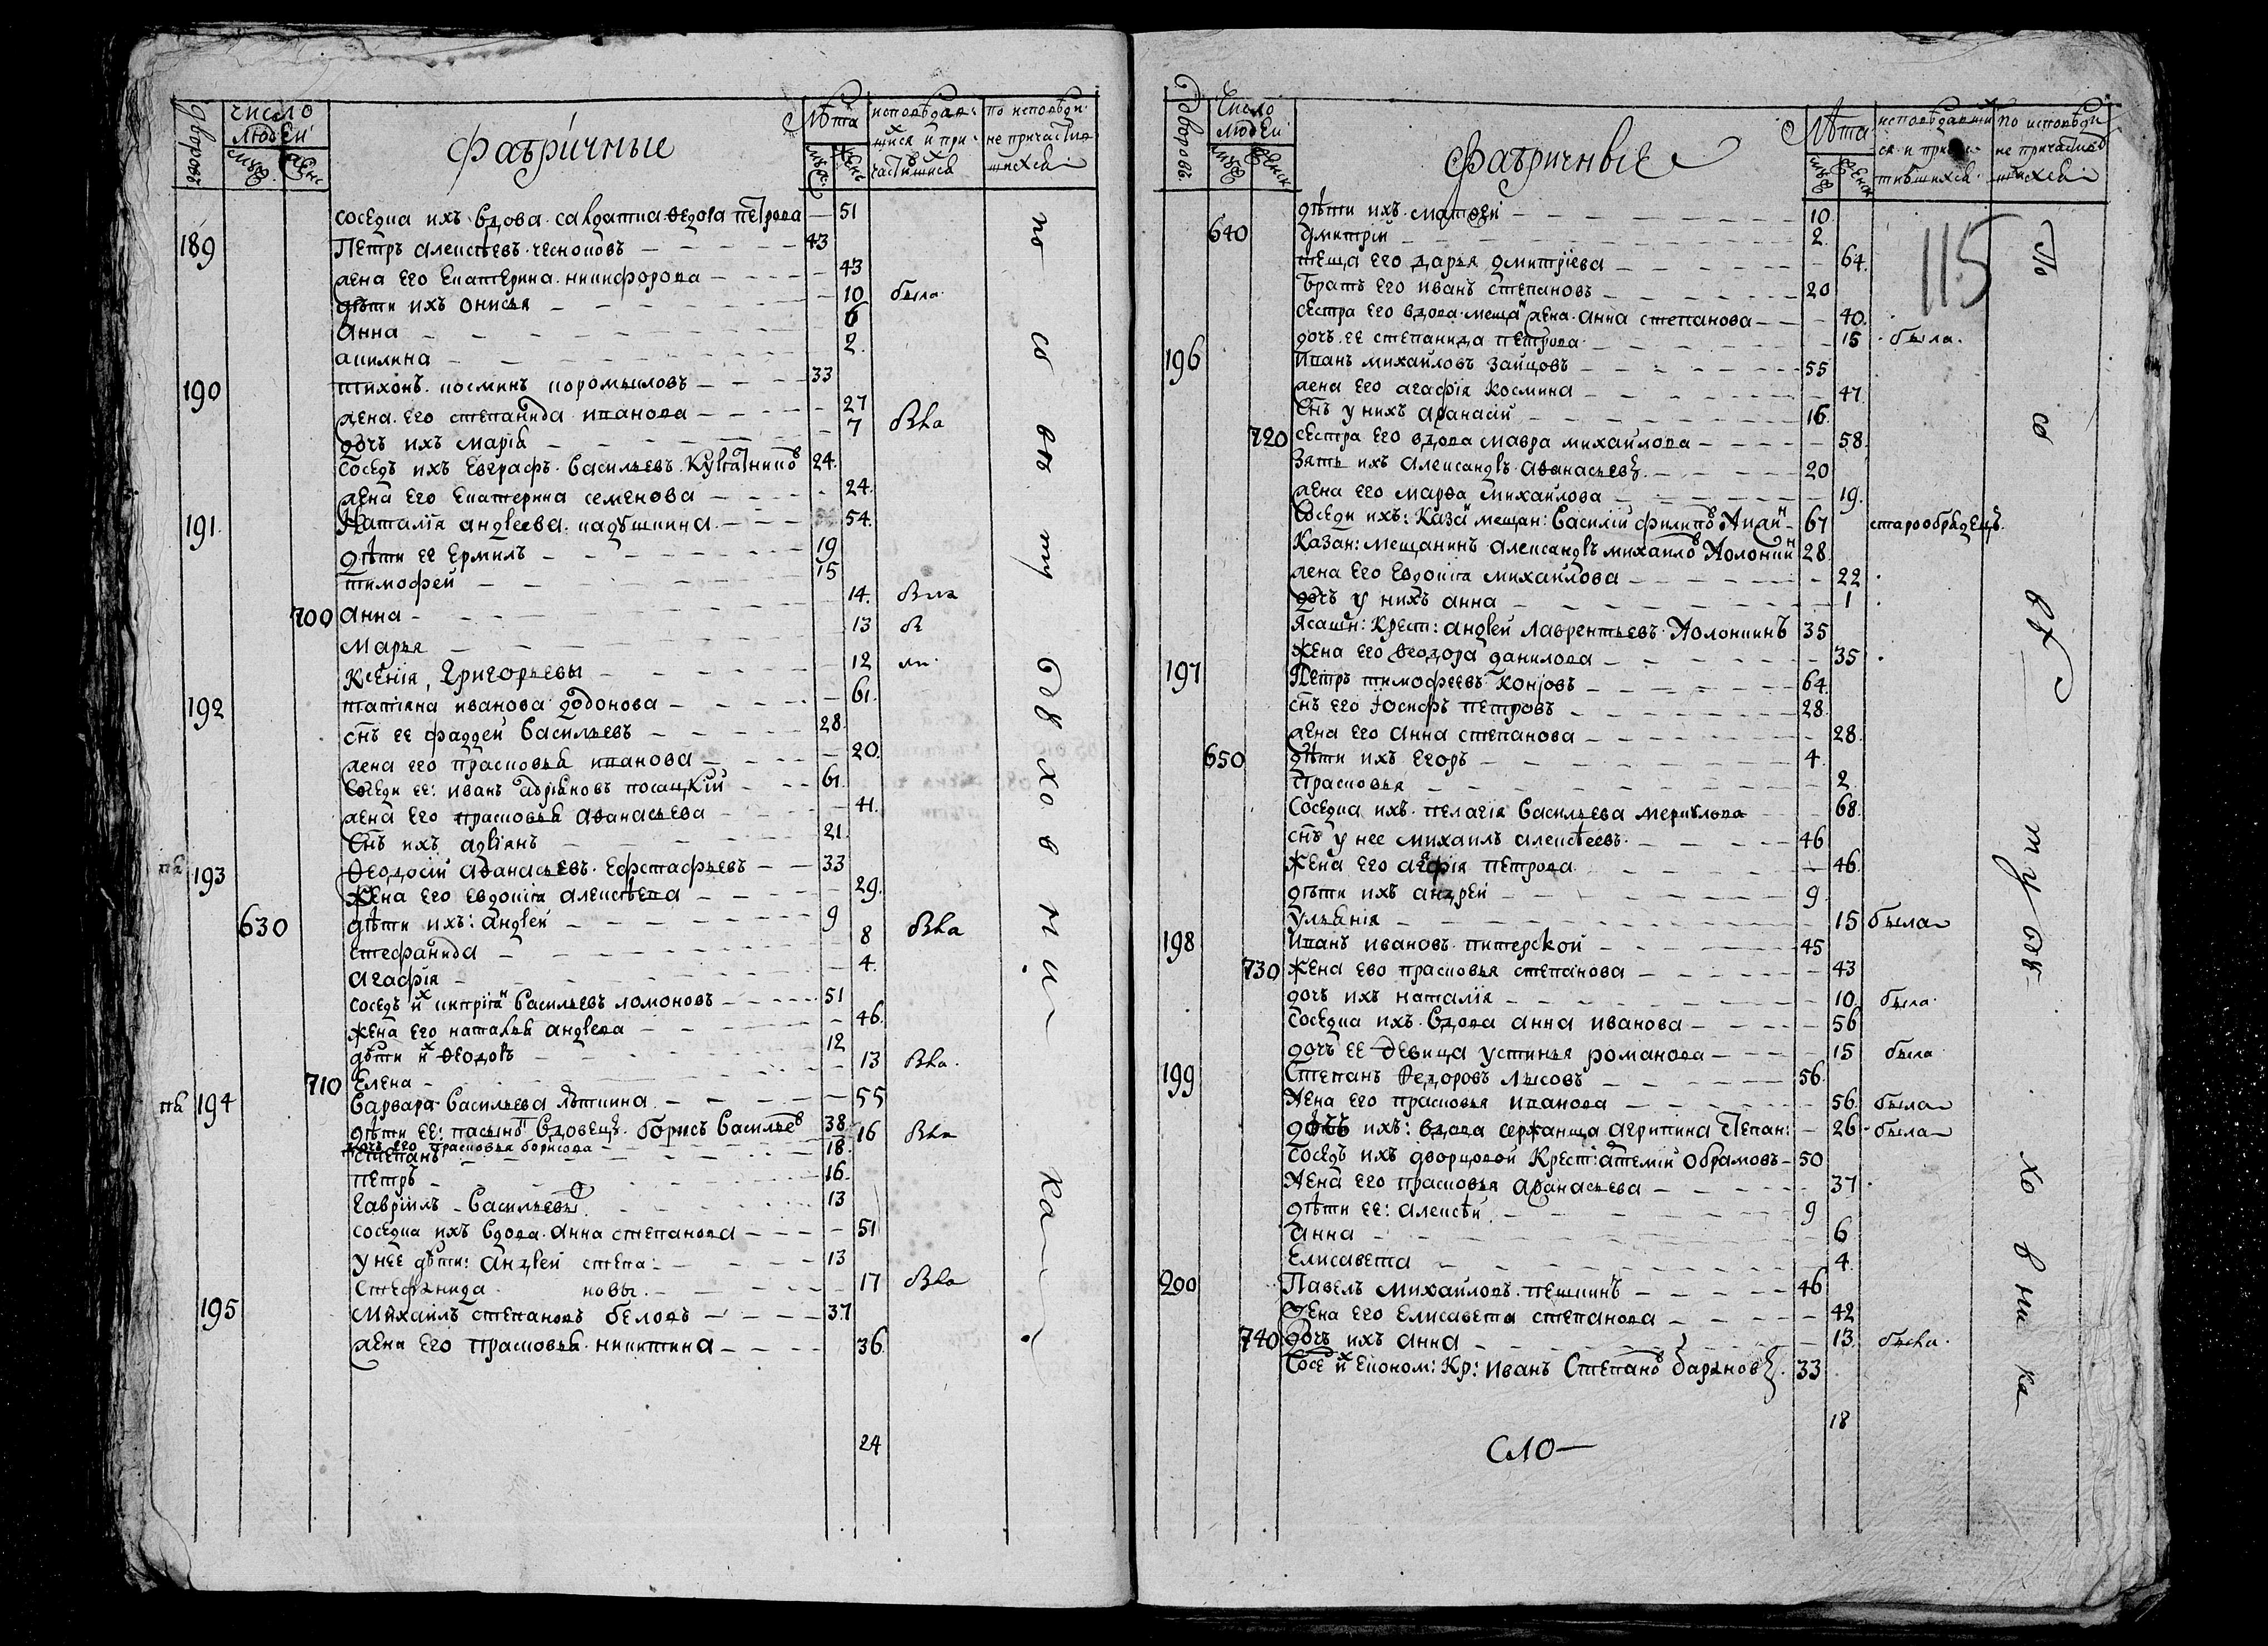 дворовъ
число
людей
муж
женс
фабричные
Лѣта
муж
женс
исповѣдав
шихся и при
частившихся
по исповѣди
не причастив
шихся
соседка ихъ вдова салдатка Ѳедора петрова — 51
189 Петръ алексѣевъ чесноковъ — 43
жена его екатерина никифорова — 43
дѣти ихъ онисья — 10 была
Анна — 6
акилина — 2
190 тихонъ косминъ коромысловъ — 33
жена его степанида иванова — 27
дочь ихъ марія — 7 была
соседъ ихъ евграфъ Васильевъ 24
жена его екатерина семенова — 24
191 Наталія андреева кадушкина — 54
дѣти ее ермилъ — 19
тимофей — 15
700 Анна — 14 была
Марья — 13 бы
Ксенія, Григорьевы — 12 ли
192 татіяна иванова додонова — 61
снъ ее фаддей Васильевъ — 28
жена его прасковья иванова — 20
соседи ее: иванъ адріановъ посацкій — 61
жена его прасковья аѳанасьева — 41
снъ ихъ адріянъ — 21
193 Ѳеодосій аѳанасьевъ Ефстафьевъ — 33
жена его евдокія алексѣева — 29
630 дѣти ихъ: андрей — 9
стефанида — 8 была
агафія — 4
соседъ их Васильевъ ломоновъ — 51
жена его наталья андреева — 46
дѣти их Ѳеодоръ — 12
710 Елена — 13 была
194 Варвара Васильева лѣткина — 55
дѣти ее: пасынокъ вдовецъ Борисъ Васильевъ 38
дочь его прасковья борисова — 16 была
степанъ — 18
петръ — 16
гавріилъ — Васильевы — 13
соседка ихъ вдова анна степанова — 51
у нее дѣти: андрей степа — 13
стефанида новы — 17 была
195 михаилъ степановъ беловъ — 37
жена его прасковья никитина — 36
24
по сю ту духовника
дворовъ
Число
людей
муж
женск
фабричные
Лѣта
муж
женск
исповѣдавши
ся и прича
тившихся
по исповѣди
не причастив
шихся
115
дѣти ихъ матѳей — 10
640 дмитрій — 2
теща его дарья дмитріева — 64
братъ его иванъ степановъ — 20
сестра его вдова мещан жена анна степанова — 40
дочь ее степанида петрова — 15 была
196 иванъ михайловъ зайцовъ — 55
жена его агафія космина — 47
снъ у нихъ аѳанасій — 16
720 сестра его вдова мавра михайлова — 58
зять ихъ александръ аѳанасьевъ — 20
жена его марѳа михайлова — 19
соседи ихъ: Казан мещан: Василій филиповъ — 67 старообрядецъ
Казан: мещанинъ александръ михайловъ Холонин 28
жена его евдокія михайлова — 22
дочь у нихъ анна — 1
Ясашн: Крест: андрей лаврентьевъ Холонкинъ 35
жена его Ѳеодора данилова — 35
197 Петръ тимофеевъ коновъ — 64
снъ его іосифъ петровъ — 28
жена его анна степанова — 28
650 дѣти ихъ егоръ — 4
прасковья — 2
соседка ихъ пелагія Васильева мерклова — 68
снъ у нее михаилъ алексѣевъ — 46
жена его агафія петрова — 46
дѣти ихъ андрей — 9
ульянія — 15 была
198 иванъ ивановъ питерской — 45
730 жена ево прасковья степанова — 43
дочь ихъ наталія — 10 была
соседка ихъ вдова анна иванова — 56
дочь ее девица устинья романова — 15 была
199 Степанъ Ѳедоровъ лысовъ — 56
жена его прасковья иванова — 56 была
дочь ихъ: вдова сержанща агрипина степан: — 26 была
соседъ ихъ дворцовой крест: артемій обрамовъ — 50
жена его прасковья аѳанасьева — 37
дѣти ее: алексѣй — 9
анна — 6
елисавета — 4
200 Павелъ михайловъ пешкинъ — 46
жена его елисавета степанова — 42
740 дочь ихъ анна — 13 была
сосе их економ: кр: иванъ степановъ барановъ 33
18
сло—
По сю ту духовника